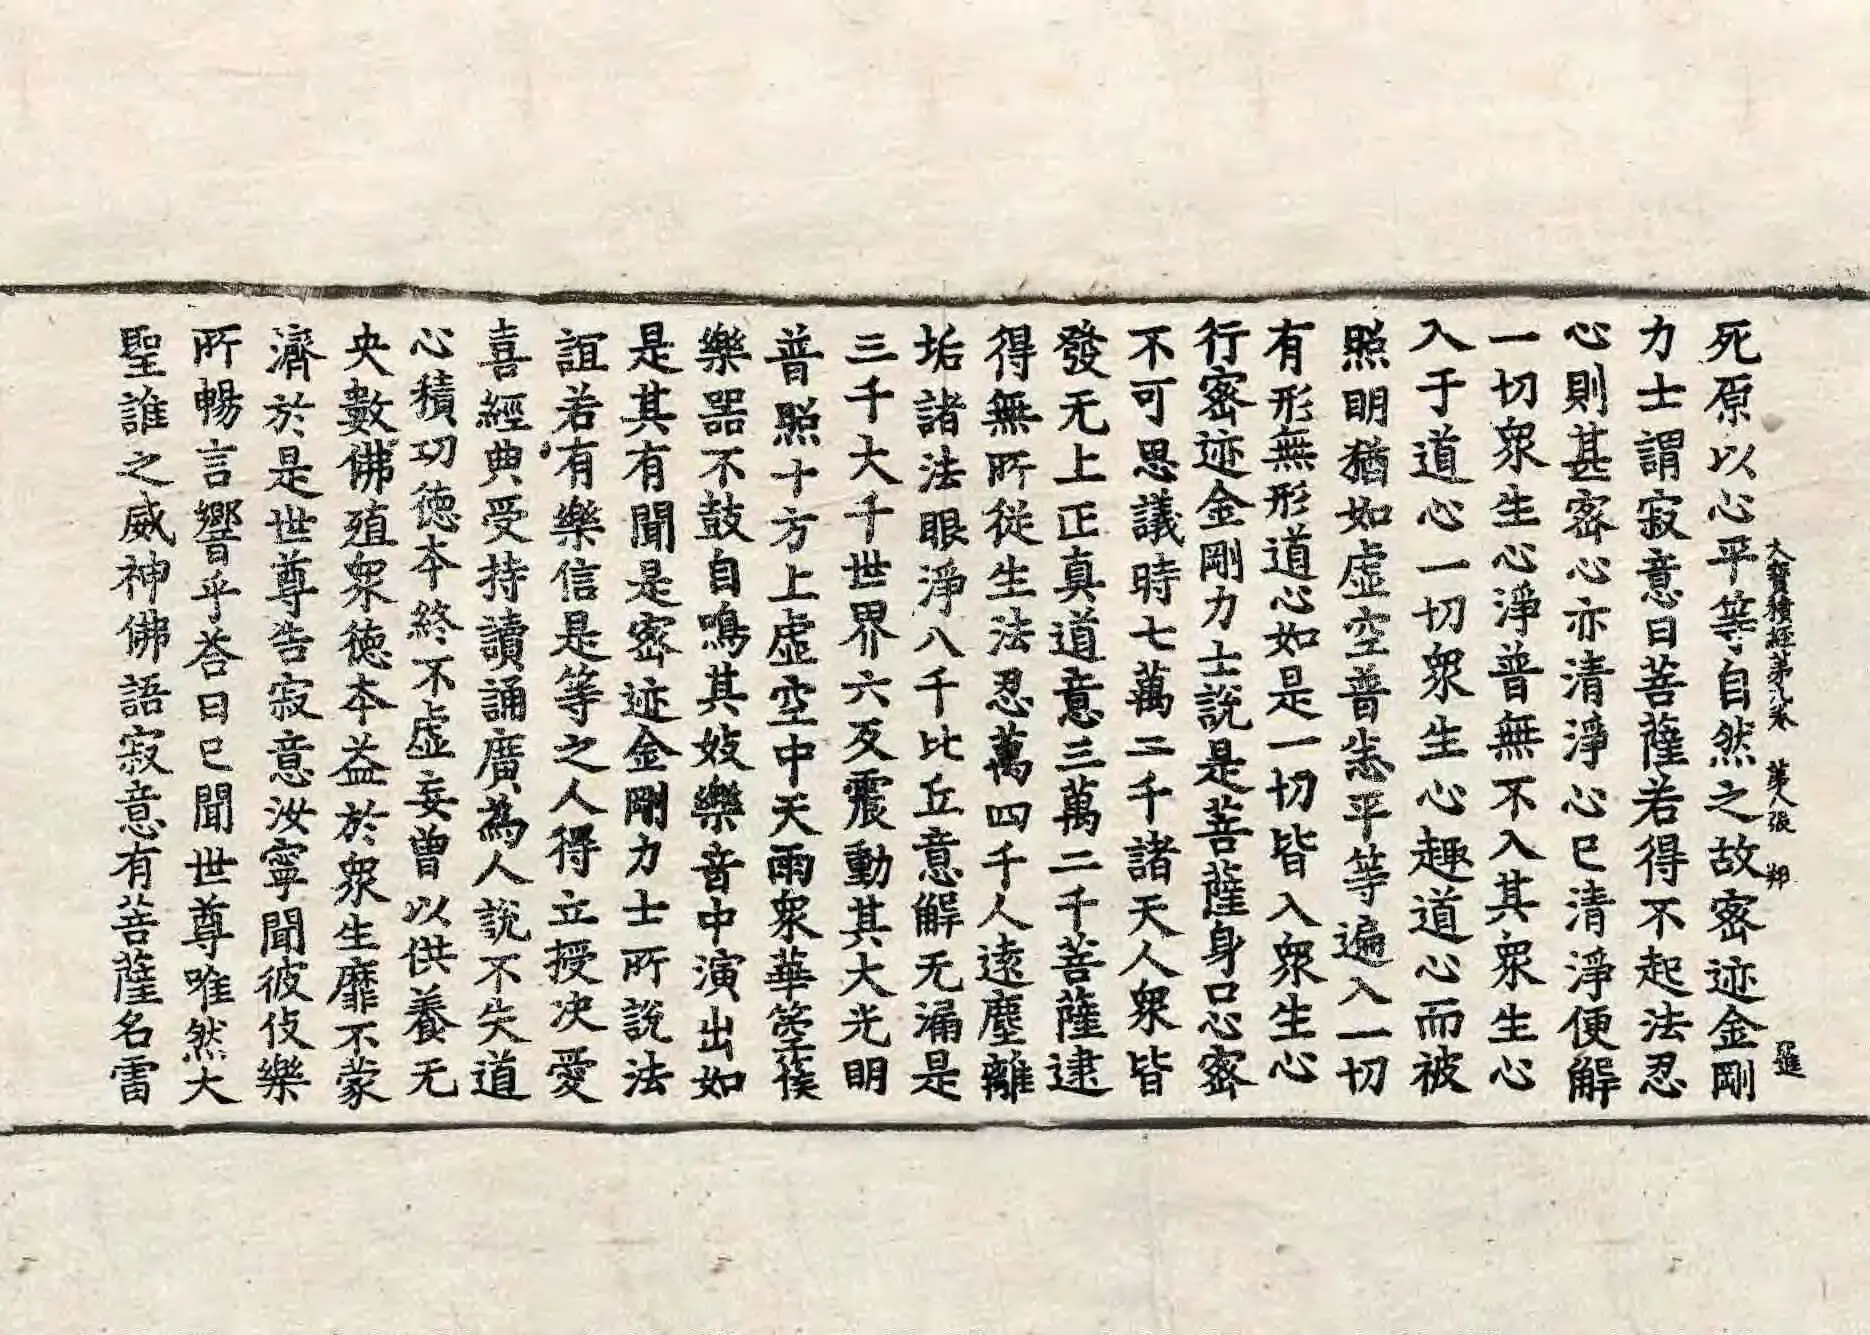 大寶積經第八卷 第八張 鄁
死原以心平等自然之故密迹金剛
力士謂寂意曰菩薩若得不起法忍
心則甚密心亦清淨心已清淨便解
一切眾生心淨普無不入其眾生心
入于道心一切眾生心趣道心而被
照明猶如虛空普恙平等遍入一切
有形無形道心如是一切皆入眾生心
行密迹金剛力士說是菩薩身口心密
不可思議時七萬二千諸天人眾皆
發无上正真道意三萬二千菩薩逮
得無所從生法忍萬四千人遠塵離
垢諸法眼淨八千比丘意解无漏是
三千大千世界六反震動其大光明
普照十方上虛空中天雨眾華箜篌
樂器不鼓自鳴其妓樂音中演出如
是其有聞是密迹金剛力士所說法
誼若有樂信是等之人得立授决愛
喜經典受持讀誦廣為人說不失道
心積功德本終不虛妄曾以供養无
央數佛殖眾德本益於眾生靡不蒙
濟於是世尊告寂意汝寧聞彼伎樂
所暢言響乎荅曰已聞世尊唯然大
聖誰之威神佛語寂意有菩薩名雷